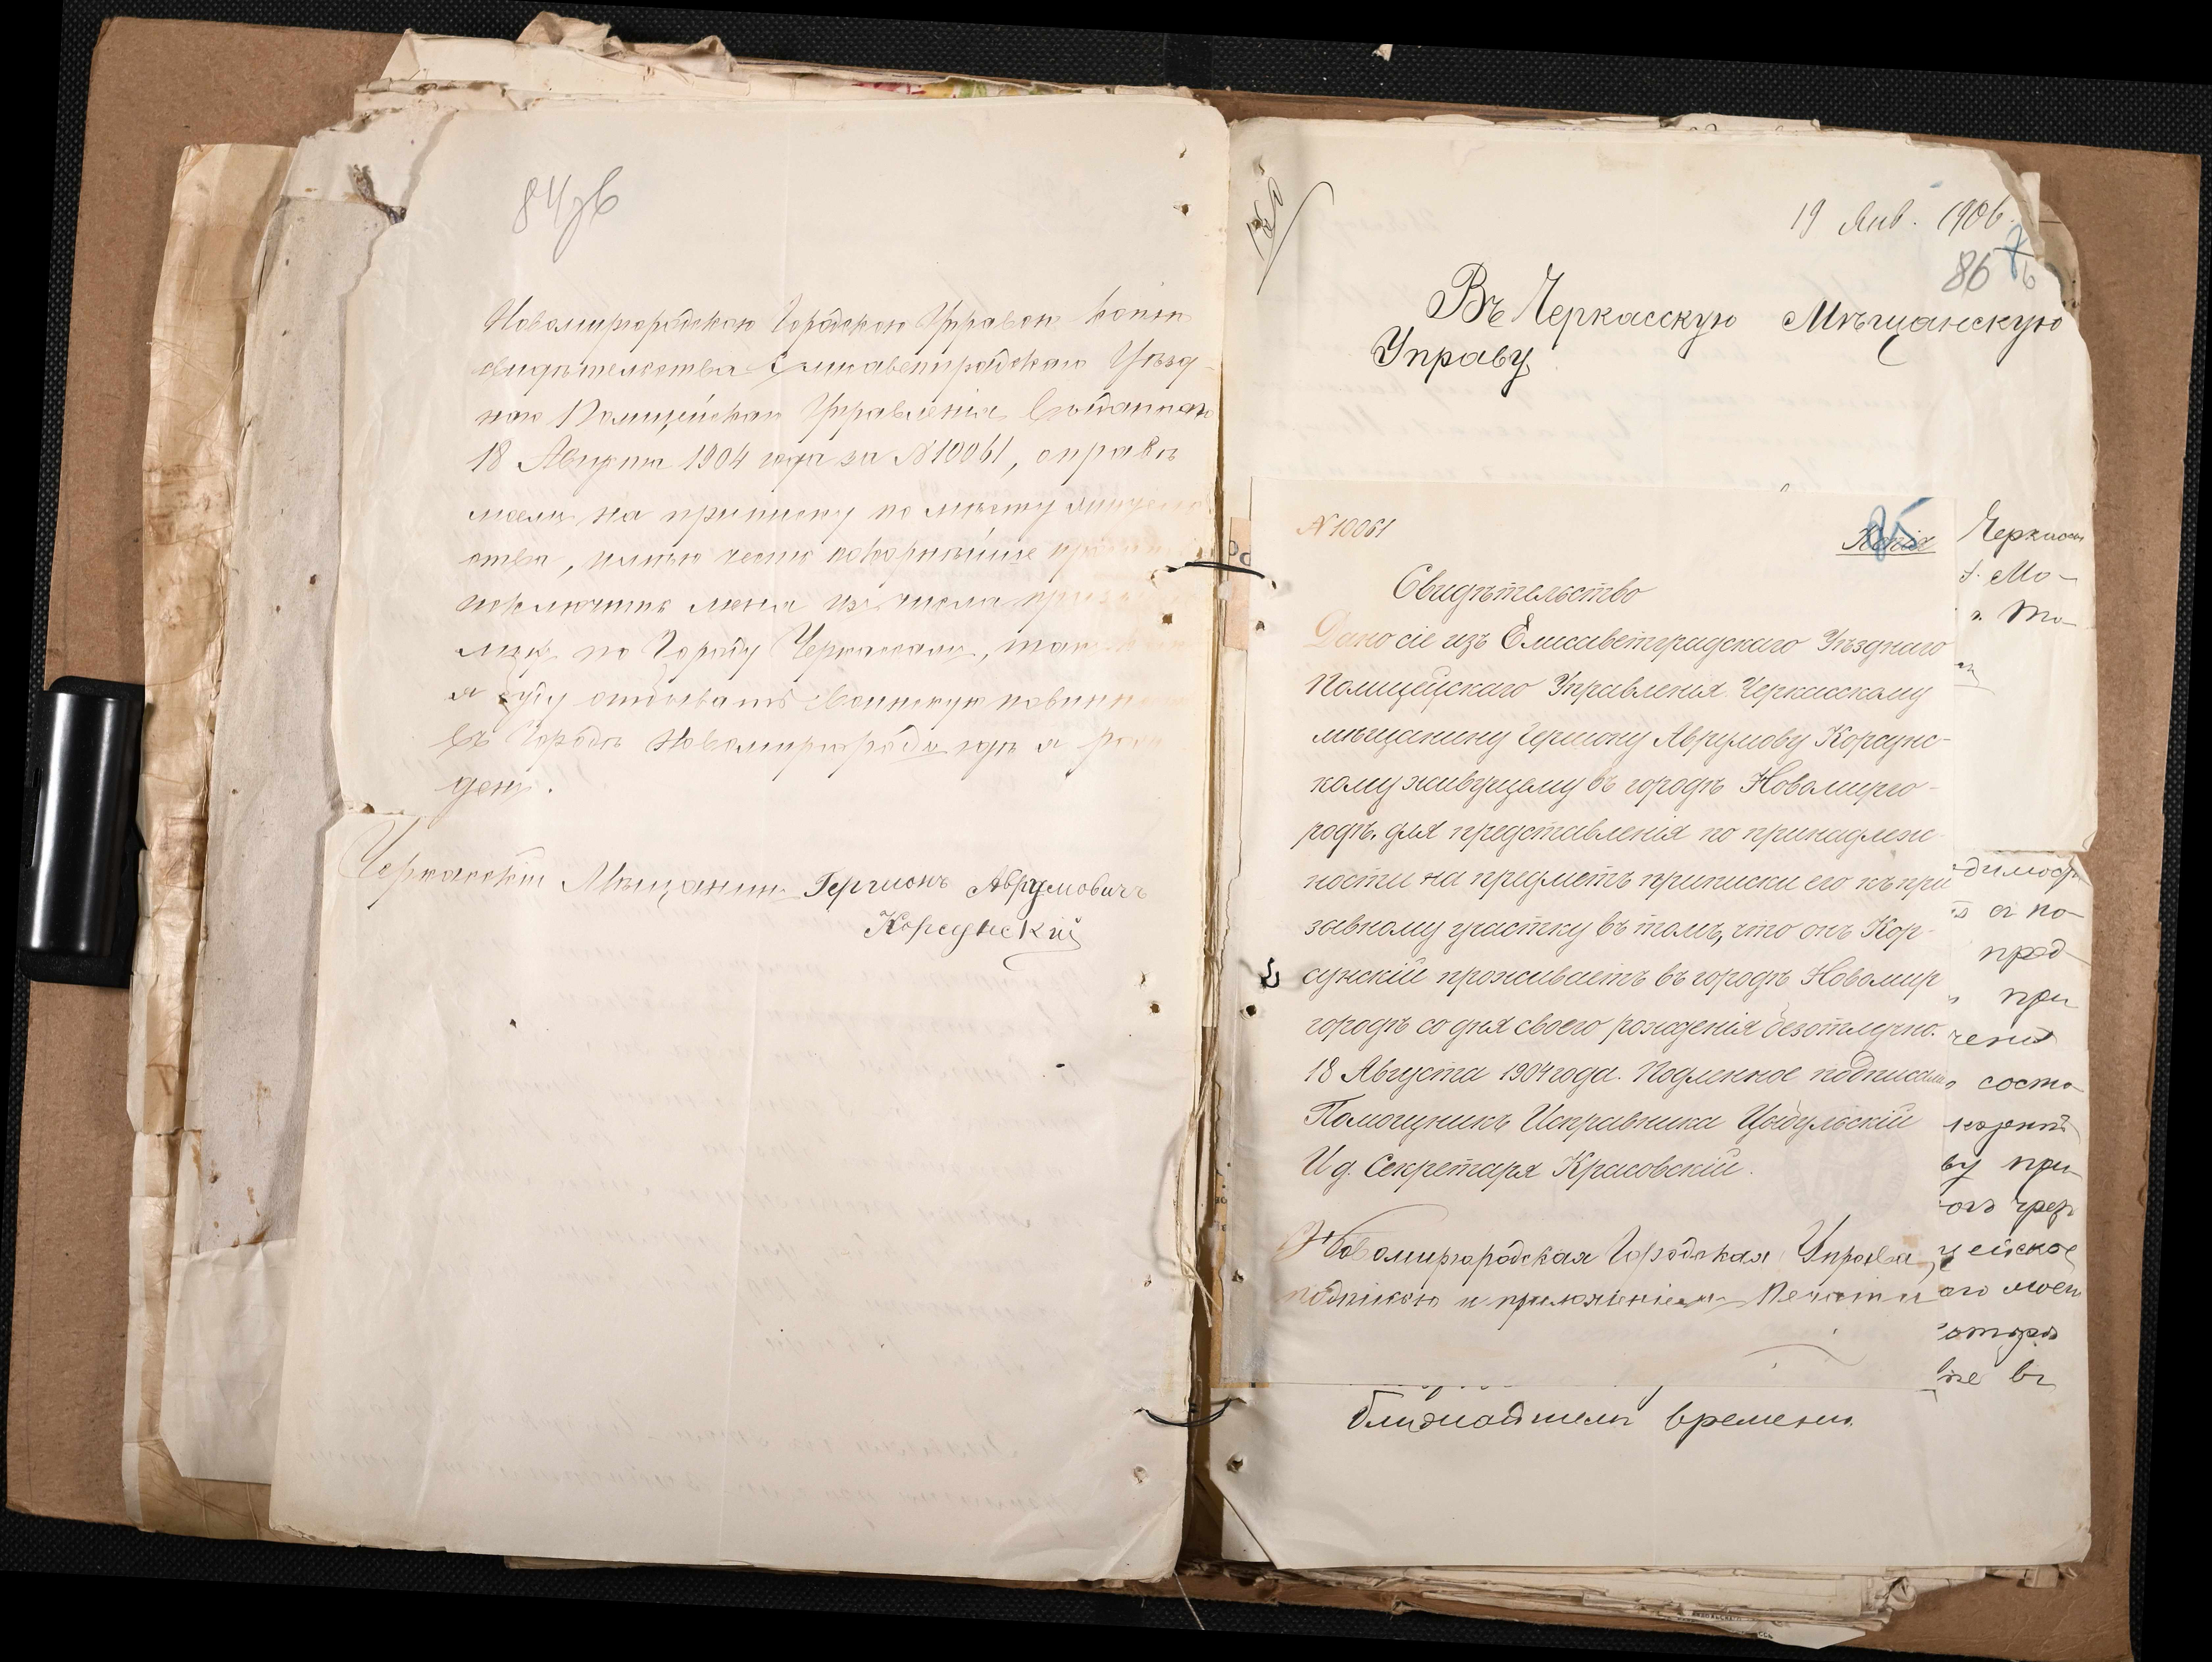 84зв
Новомиргородскою Городскою Управою копіи
свидѣтельства Елисаветградскаго Уѣзд-
наго Полицейскаго Управленія
18 Августа 1904 года за №10061, о правѣ
моемъ на приписку по мѣсту
ства, имѣю честь покорнѣйше
исключить меня изъ числа
по Городу Черкассамъ, такъ
я буду отбывать Воинскую повин
въ Городѣ Новомиргородѣ гдѣ я
денъ.
Черкасскій Мѣщанинъ Гершонъ Аврумовичъ
Корсунскій
19 Янв. 1906.
86
Въ Черкасскую Мѣщанскую
Управу
№10061
85
Копія
Свидѣтельство
Дано сіе изъ Елисаветградскаго Уѣзднаго
Полицейскаго Управленія Черкасскому
мѣщанину Гершону Аврумову Корсунс-
кому живущему въ городѣ Новомирго-
родѣ, для представленія по принадлеж-
ности на предметъ приписки его къ при
зывному участку въ томъ, что онъ Кор-
сунскій проживаетъ въ городѣ Новомир
городѣ со дня своего рожденія безотлучно.
18 Августа 1904 года. Подленное подписали
Помощникъ Исправника Цыбульскій
И д. Секретаря Красовскій.
Новомиргородская Городская Управа,
подписью и приложеніемъ Печати
Черкасс
Мо-
по-
пред-
при
ченія
состо-
ву при-
чрез
цейское
его моен
же въ
ближайшемъ времени.